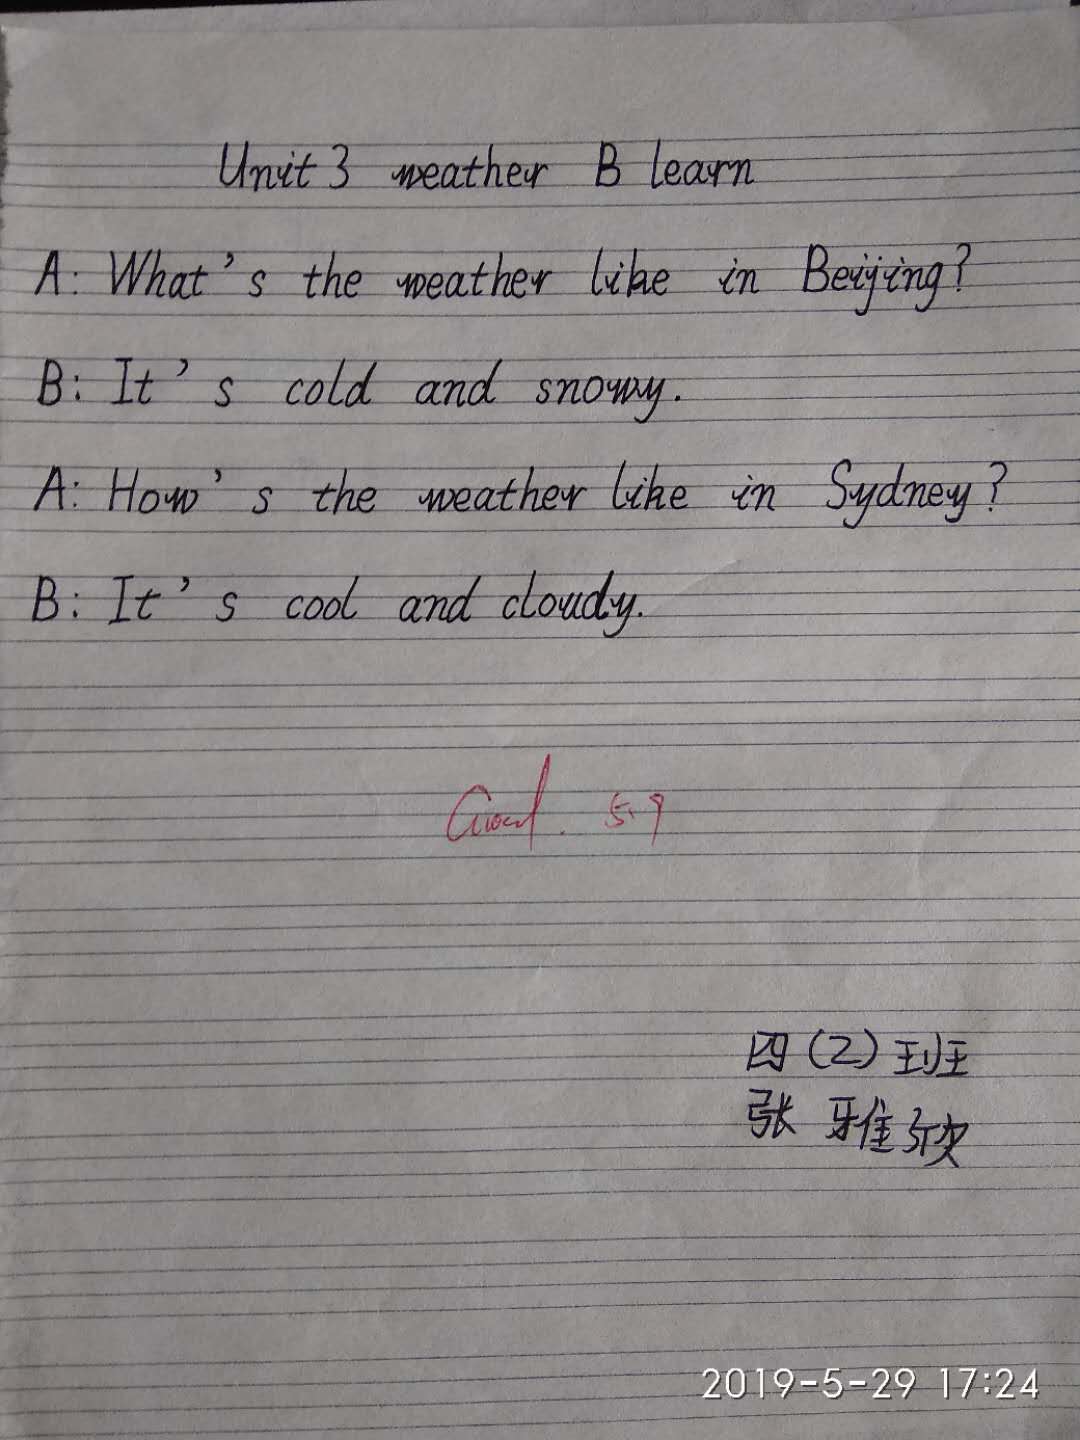 Unit 3 weather B learn
A: What's the weather like in Beijing?
B: It's cold and snowy.
A: How's the weather like in Sydney?
B: It's cool and cloudy.
Good. 5.9
四(2)班
张雅欣
2019-5-29 17:24